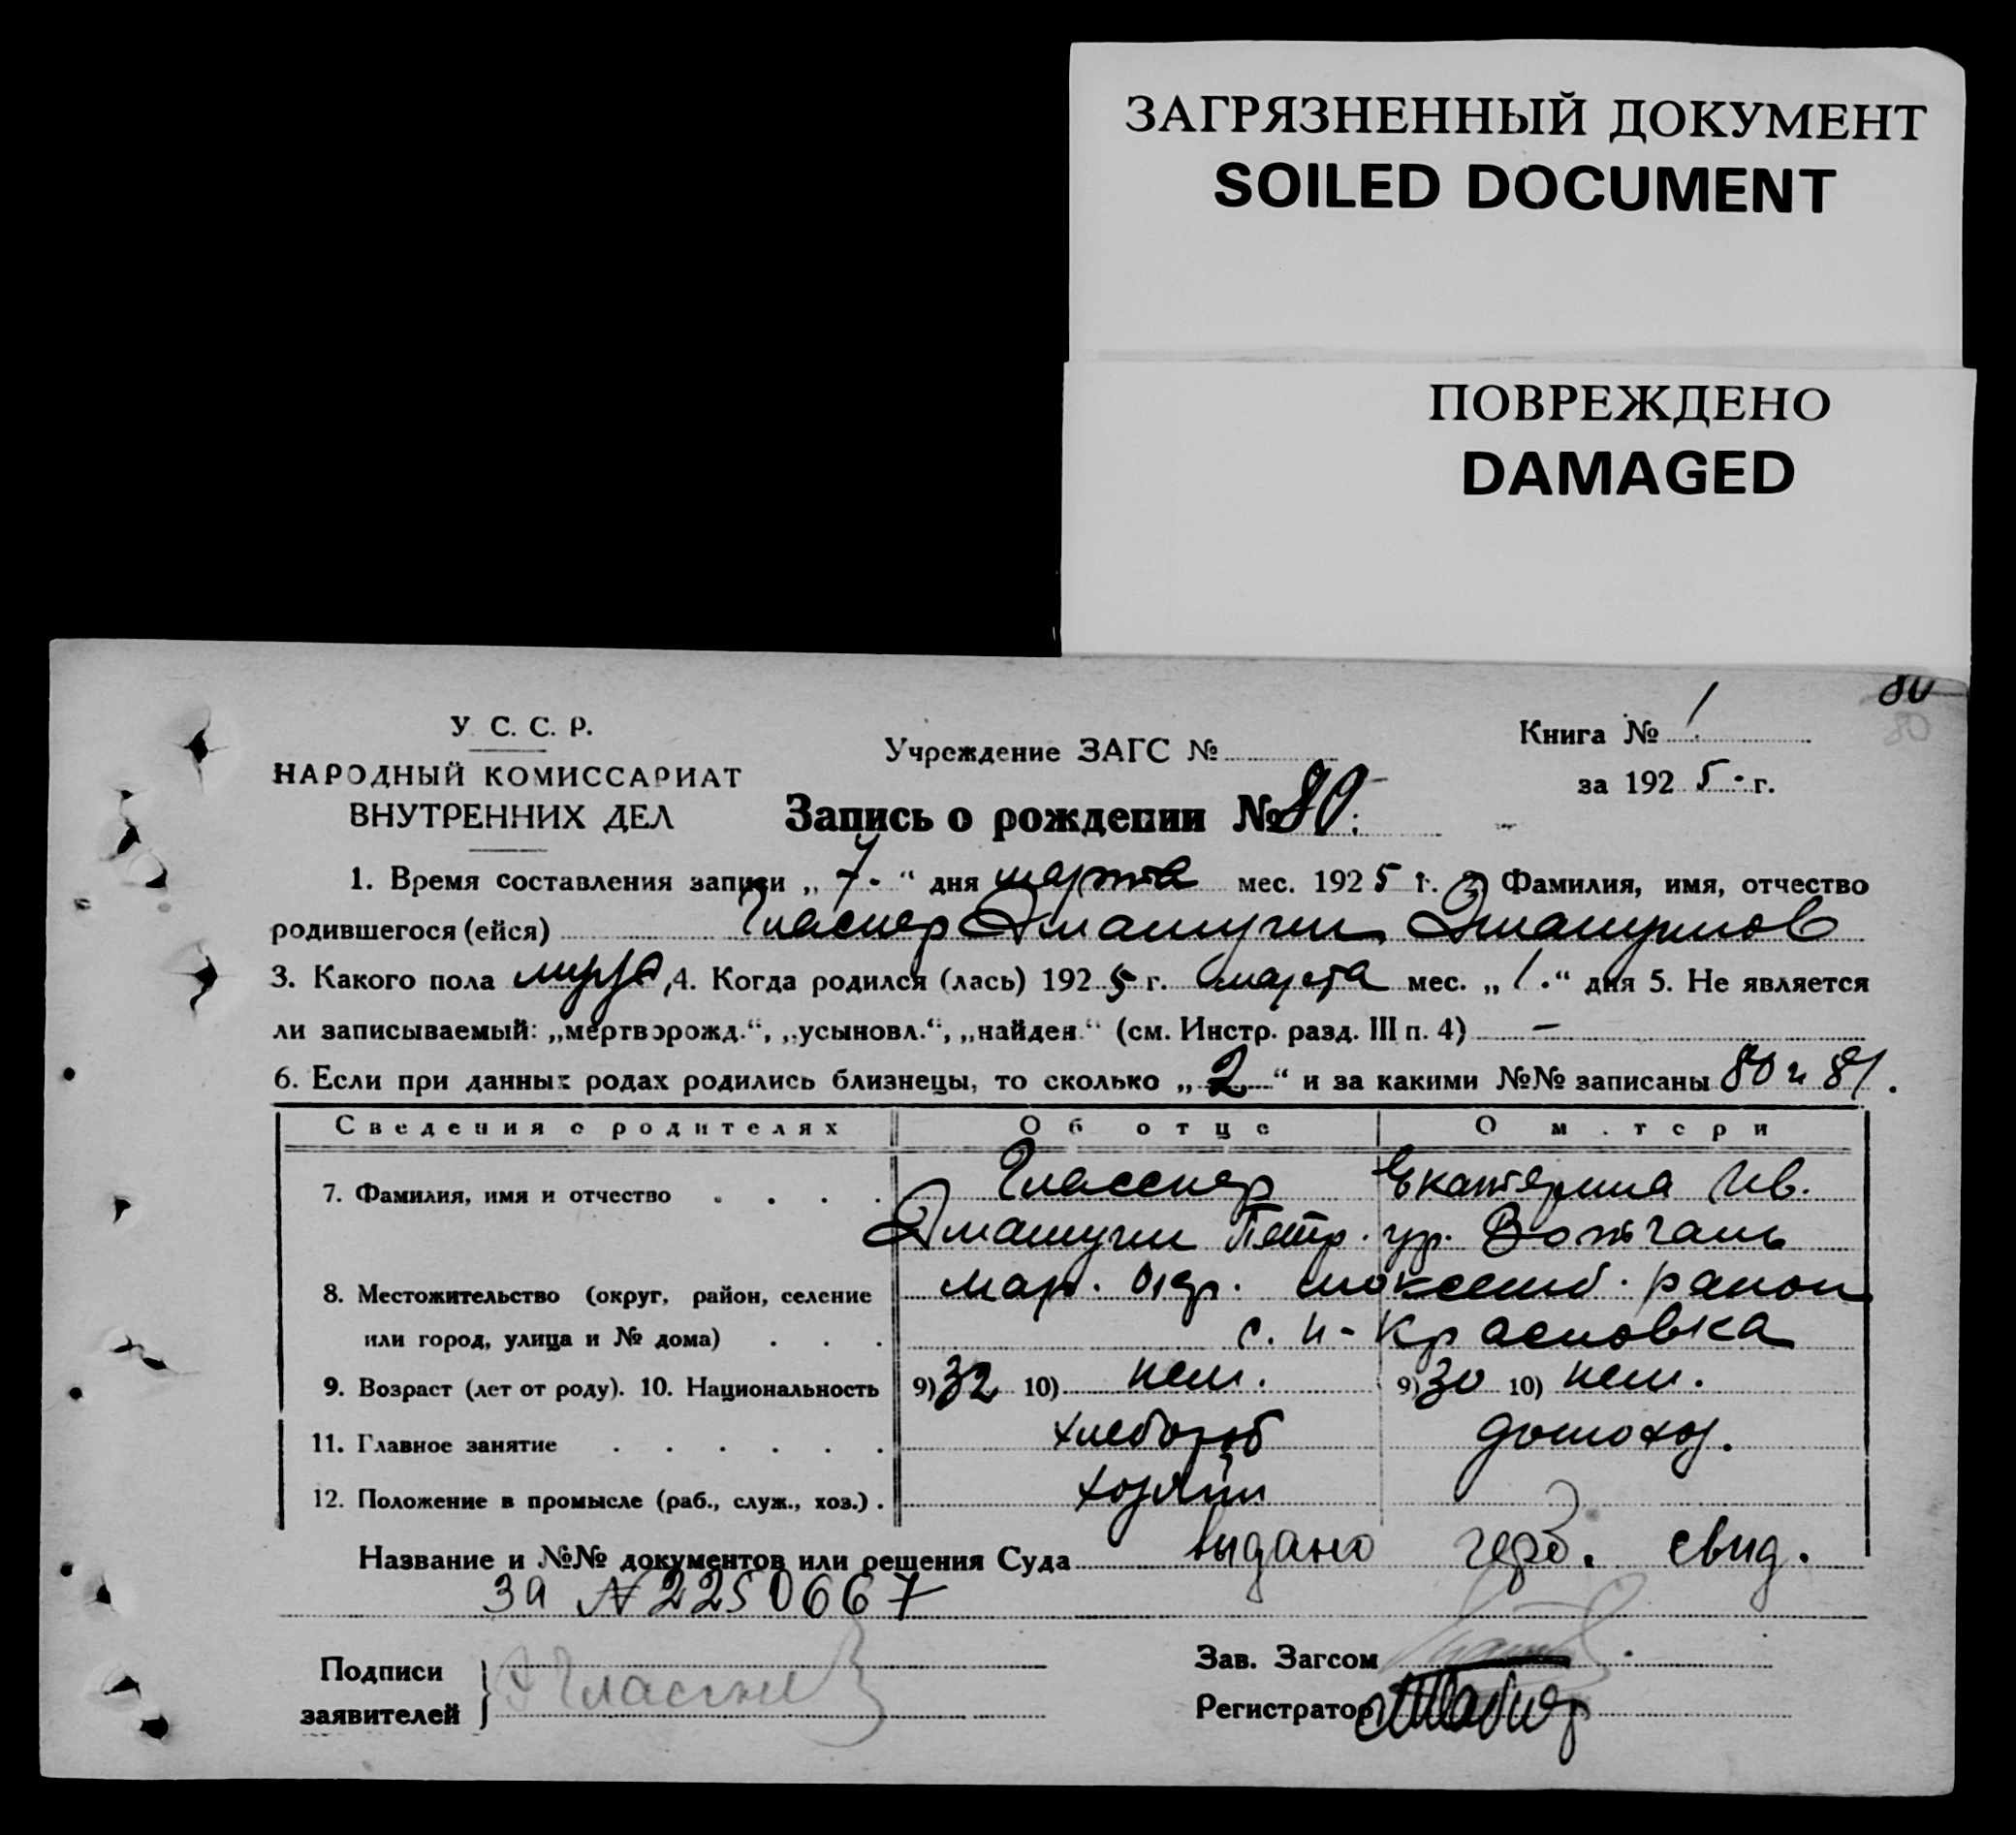 ЗАГРЯЗНЕННЫЙ ДОКУМЕНТ
SOILED DOCUMENT
ПОВРЕЖДЕНО
DAMAGED
80
80
У. С. С. Р.
НАРОДНЫЙ КОМИССАРИАТ
ВНУТРЕННИХ ДЕЛ
Учреждение ЗАГС №
Книга № 1
за 1925 г.
Запись о рождении № 80.
1. Время составления записи „7“ дня марта мес. 1925 г. 2) Фамилия, имя, отчество
родившегося (ейся) Гласнер Эмануил Эмануилов
3. Какого пола муж, 4. Когда родился (лась) 1925 г. марта мес. „1.“ дня 5. Не является
ли записываемый: „мертворожд.“, „усыновл.“, „найден.“ (см. Инстр. разд. III п. 4) —
6. Если при данных родах родились близнецы, то сколько „2“ и за какими №№ записаны 80 и 81.
Сведения о родителях Об отце О матери
7. Фамилия, имя и отчество Гласснер Екатерина Ив.
Эмануил Петр. ур.
8. Местожительство (округ, район, селение мар. окр. район
или город, улица и № дома) с. Н-Красновка
9. Возраст (лет от роду). 10. Национальность 9) 32 10) нем. 9) 30 10) нем.
11. Главное занятие хлебороб домохоз.
12. Положение в промысле (раб., служ., хоз.) хозяин
Название и №№ документов или решения Суда выдано герб. свид.
за N 2250667
Подписи
заявителей
Зав. Загсом
Регистратор